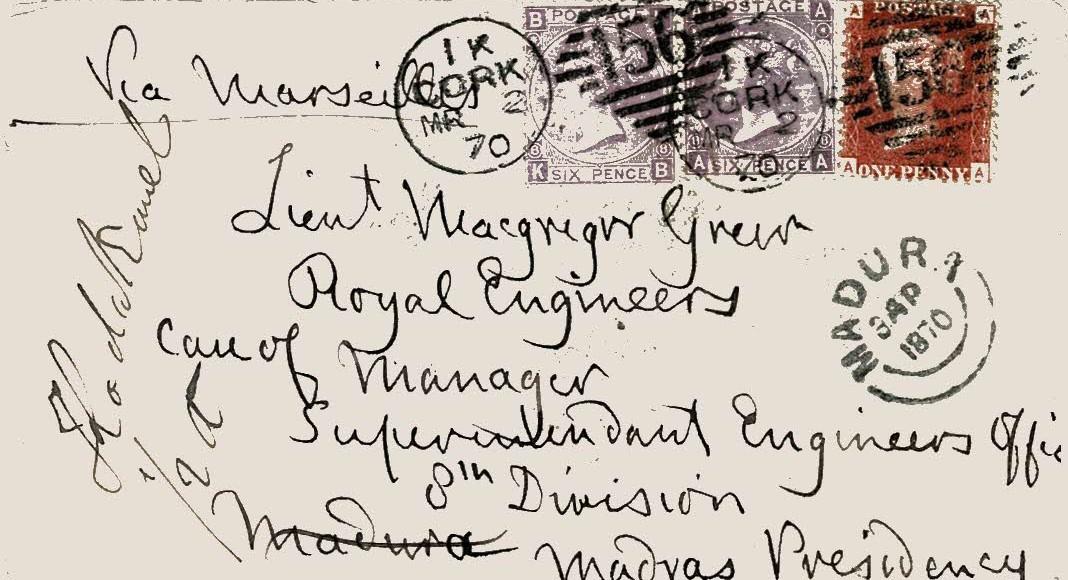 B POSTAGE
POSTAGE A
A POSTAGE A
1 K
CORK
MR 2
70
156
1 K
CORK
MR 2
70
156
K SIX PENCE B
A SIX PENCE A
A ONE PENNY A
Via Marseilles
Lieut Macgregor Greer
Royal Engineers
Care of Manager
Superintendant Engineers Offic
8th Division
Madura Madras Presidency
MADURA
3 AP
1870
Kodakanel